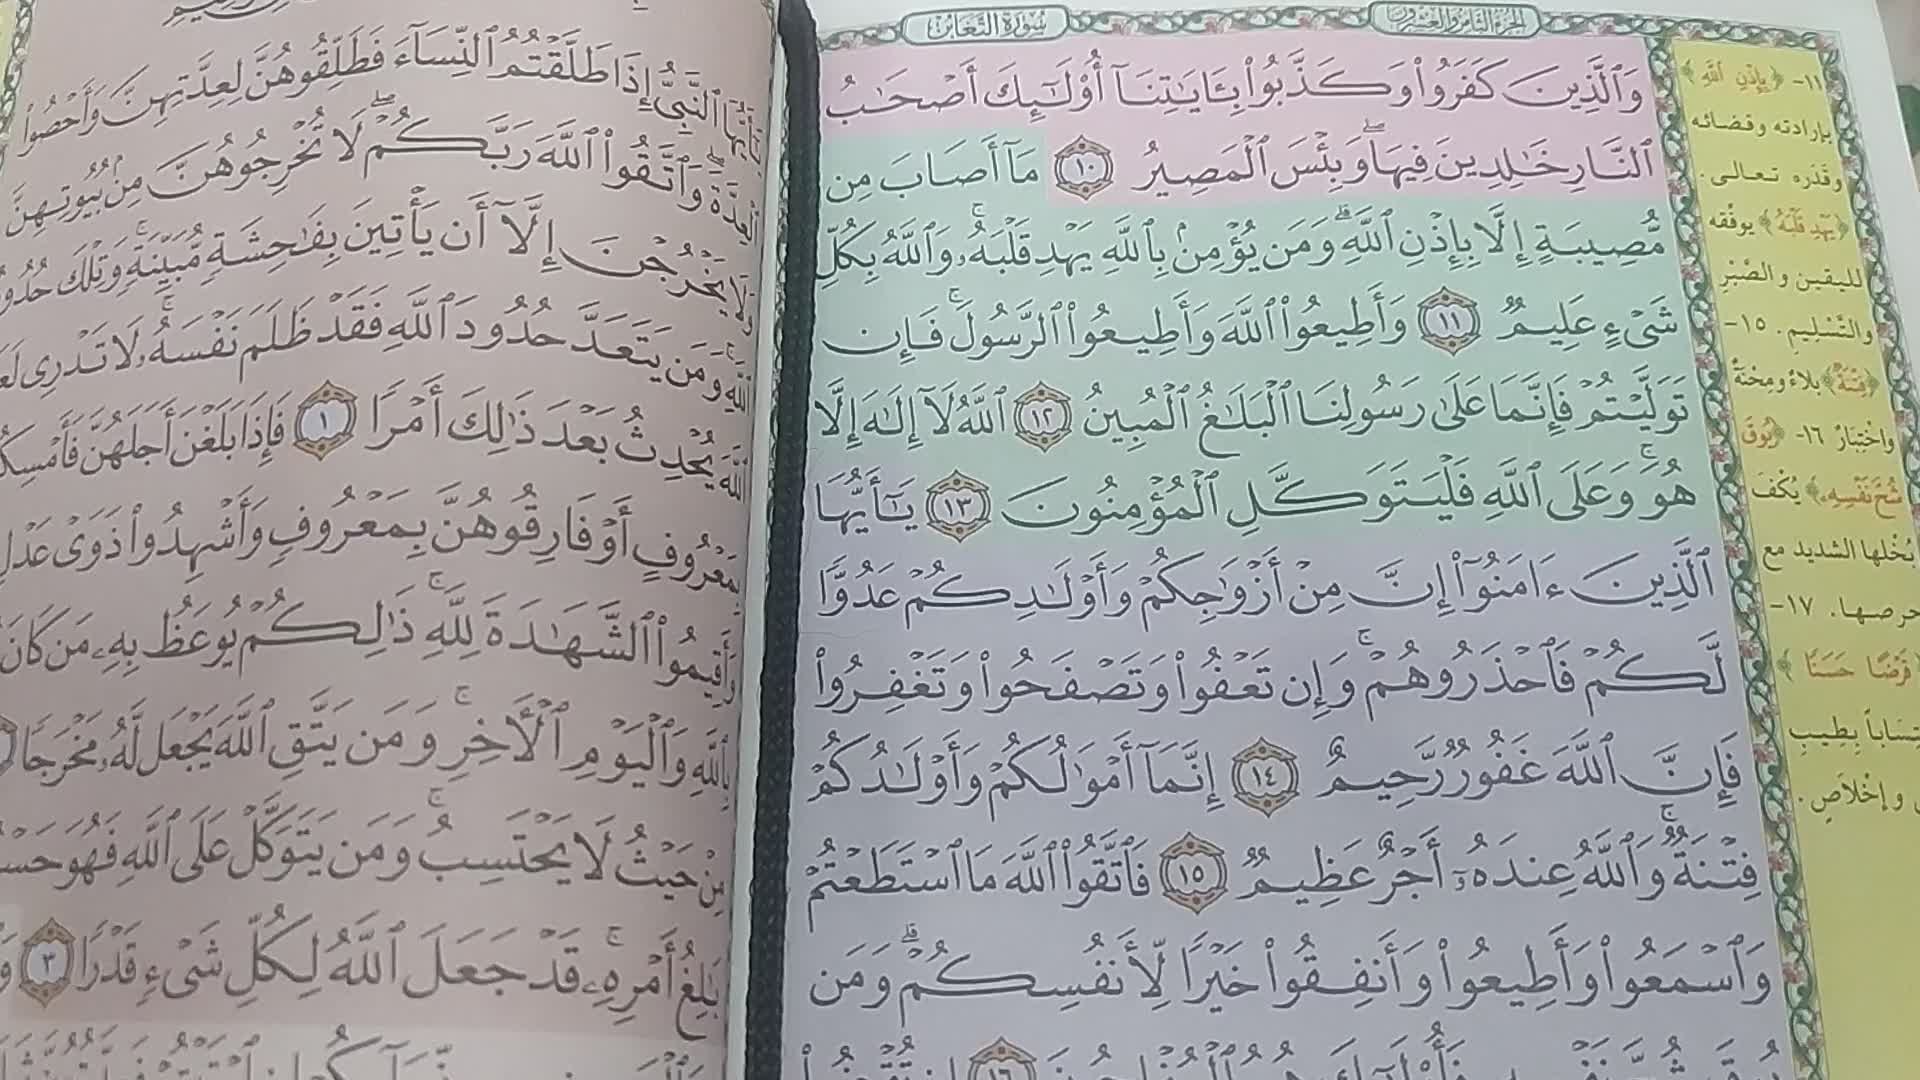 سُورَةُ التَّغَابُنِ
الجُزْءُ الثَّامِنُ وَالعِشْرُونَ
وَٱلَّذِينَ كَفَرُوا۟ وَكَذَّبُوا۟ بِـَٔايَـٰتِنَآ أُو۟لَـٰٓئِكَ أَصْحَـٰبُ
ٱلنَّارِ خَـٰلِدِينَ فِيهَا ۖ وَبِئْسَ ٱلْمَصِيرُ ١٠ مَآ أَصَابَ مِن
مُّصِيبَةٍ إِلَّا بِإِذْنِ ٱللَّهِ ۗ وَمَن يُؤْمِنۢ بِٱللَّهِ يَهْدِ قَلْبَهُۥ ۚ وَٱللَّهُ بِكُلِّ
شَىْءٍ عَلِيمٌ ١١ وَأَطِيعُوا۟ ٱللَّهَ وَأَطِيعُوا۟ ٱلرَّسُولَ ۚ فَإِن
تَوَلَّيْتُمْ فَإِنَّمَا عَلَىٰ رَسُولِنَا ٱلْبَلَـٰغُ ٱلْمُبِينُ ١٢ ٱللَّهُ لَآ إِلَـٰهَ إِلَّا
هُوَ ۚ وَعَلَى ٱللَّهِ فَلْيَتَوَكَّلِ ٱلْمُؤْمِنُونَ ١٣ يَـٰٓأَيُّهَا
ٱلَّذِينَ ءَامَنُوٓا۟ إِنَّ مِنْ أَزْوَٰجِكُمْ وَأَوْلَـٰدِكُمْ عَدُوًّا
لَّكُمْ فَٱحْذَرُوهُمْ ۚ وَإِن تَعْفُوا۟ وَتَصْفَحُوا۟ وَتَغْفِرُوا۟
فَإِنَّ ٱللَّهَ غَفُورٌ رَّحِيمٌ ١٤ إِنَّمَآ أَمْوَٰلُكُمْ وَأَوْلَـٰدُكُمْ
فِتْنَةٌ ۚ وَٱللَّهُ عِندَهُۥٓ أَجْرٌ عَظِيمٌ ١٥ فَٱتَّقُوا۟ ٱللَّهَ مَا ٱسْتَطَعْتُمْ
وَٱسْمَعُوا۟ وَأَطِيعُوا۟ وَأَنفِقُوا۟ خَيْرًا لِّأَنفُسِكُمْ ۗ وَمَن
١١- ﴿بِإِذْنِ ٱللَّهِ﴾
بإرادته وقضائه
وقدره تعالى.
﴿يَهْدِ قَلْبَهُ﴾ يوفقه
لليقين والصَّبْرِ
والتَّسْلِيمِ. ١٥-
﴿فِتْنَةٌ﴾ بلاءٌ ومِحْنَةٌ
واخْتِبَارٌ ١٦- ﴿يُوقَ
شُحَّ نَفْسِهِۦ﴾ يُكْفَ
بُخْلها الشديد مع
حرصها. ١٧-
قَرْضًا حَسَنًا﴾
بِطِيبِ
وإخْلَاصٍ.
ٱلنَّبِىُّ إِذَا طَلَّقْتُمُ ٱلنِّسَآءَ فَطَلِّقُوهُنَّ لِعِدَّتِهِنَّ وَأَحْصُوا۟
ٱلْعِدَّةَ ۖ وَٱتَّقُوا۟ ٱللَّهَ رَبَّكُمْ ۖ لَا تُخْرِجُوهُنَّ مِنۢ بُيُوتِهِنَّ
وَلَا يَخْرُجْنَ إِلَّآ أَن يَأْتِينَ بِفَـٰحِشَةٍ مُّبَيِّنَةٍ ۚ وَتِلْكَ
ٱللَّهِ ۚ وَمَن يَتَعَدَّ حُدُودَ ٱللَّهِ فَقَدْ ظَلَمَ نَفْسَهُۥ ۚ لَا تَدْرِى
ٱللَّهَ يُحْدِثُ بَعْدَ ذَٰلِكَ أَمْرًا ١ فَإِذَا بَلَغْنَ أَجَلَهُنَّ
بِمَعْرُوفٍ أَوْ فَارِقُوهُنَّ بِمَعْرُوفٍ وَأَشْهِدُوا۟ ذَوَىْ عَدْلٍ
وَأَقِيمُوا۟ ٱلشَّهَـٰدَةَ لِلَّهِ ۚ ذَٰلِكُمْ يُوعَظُ بِهِۦ مَن كَانَ
بِٱللَّهِ وَٱلْيَوْمِ ٱلْـَٔاخِرِ ۚ وَمَن يَتَّقِ ٱللَّهَ يَجْعَل لَّهُۥ مَخْرَجًا
مِنْ حَيْثُ لَا يَحْتَسِبُ ۚ وَمَن يَتَوَكَّلْ عَلَى ٱللَّهِ فَهُوَ
بَـٰلِغُ أَمْرِهِۦ ۚ قَدْ جَعَلَ ٱللَّهُ لِكُلِّ شَىْءٍ قَدْرًا ٣